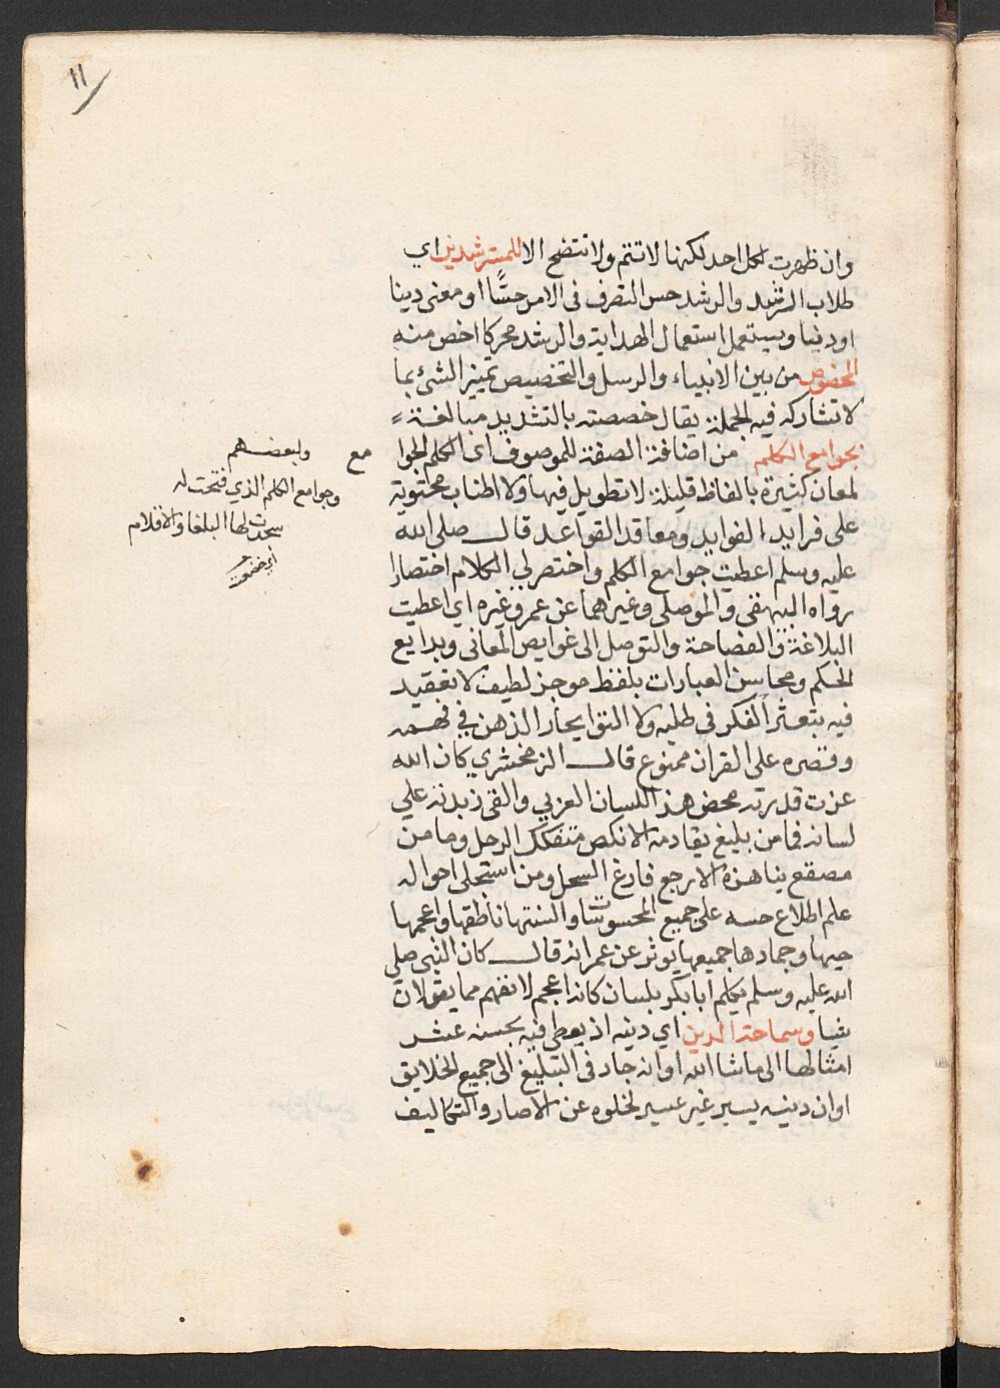 ١١
وان ظهرت لكل احد لكنها لا تتم ولا تتضح الا للمسترشدين اي
طلاب الرشد والرشد حس التصرف في الامر حسًّا او معنى دينا
او دنيا ويستعمل استعمال الهداية والرشد محركا اخص منه
المخصوص من بين الانبياء والرسل والتخصيص تمييز الشئ بما
لا تشاركه فيه الجملة يقال خصصته بالتشديد مبالغة
بجوامع الكلم من اضافة الصفة للموصوف اى الكلم الجوا
مع
لمعان كثيرة بالفاظ قليلة لا تطويل فيها ولا اطناب محتوية
على فرايد الفوايد ومعاقد القواعد قال صلى الله
عليه وسلم اعطيت جوامع الكلم واختصر لي الكلام اختصارا
رواه البيهقى والموصلى وغيرهما عن عمر وغيره اي اعطيت
البلاغة والفصاحة والتوصل الى غوايص المعانى وبدايع
الحكم ومحاسن العبارات بلفظ موجز لطيف لا تعقيد
فيه يتعثر الفكر فى طلبه ولا التوا يحار الذهن في فهمه
وقصره على القران ممنوع قال الزمخشري كان الله
عزت قدرته محض هذا اللسان العربي والقى زبدته علي
لسانه فما من بليغ يقادمه الا نكص متفكك الرحل وما من
مصقع يناهزه الا رجع فارغ السجل ومن استجلى احواله
علم اطلاع حسه على جميع المحسوسات والسنتها ناطقها واعجمها
حيها وجمادها جميعها يوثر عن عمر انه قال كان النبى صلى
الله عليه وسلم يكلم ابا بكر بلسان كانه اعجم لا نفهم مما يقولان
شيا وسماحة الدين اي دينه اذ يعطى فيه بحسنة عشر
امثالها الى ما شا الله او انه جاد فى التبليغ الى جميع الخلايق
او ان دينه يسير غير عسير لخلوه عن الاصار والتكاليف
ولبعضهم
وجوامع الكلم الذي فتحت له
سجدت لها البلغا والاقلام